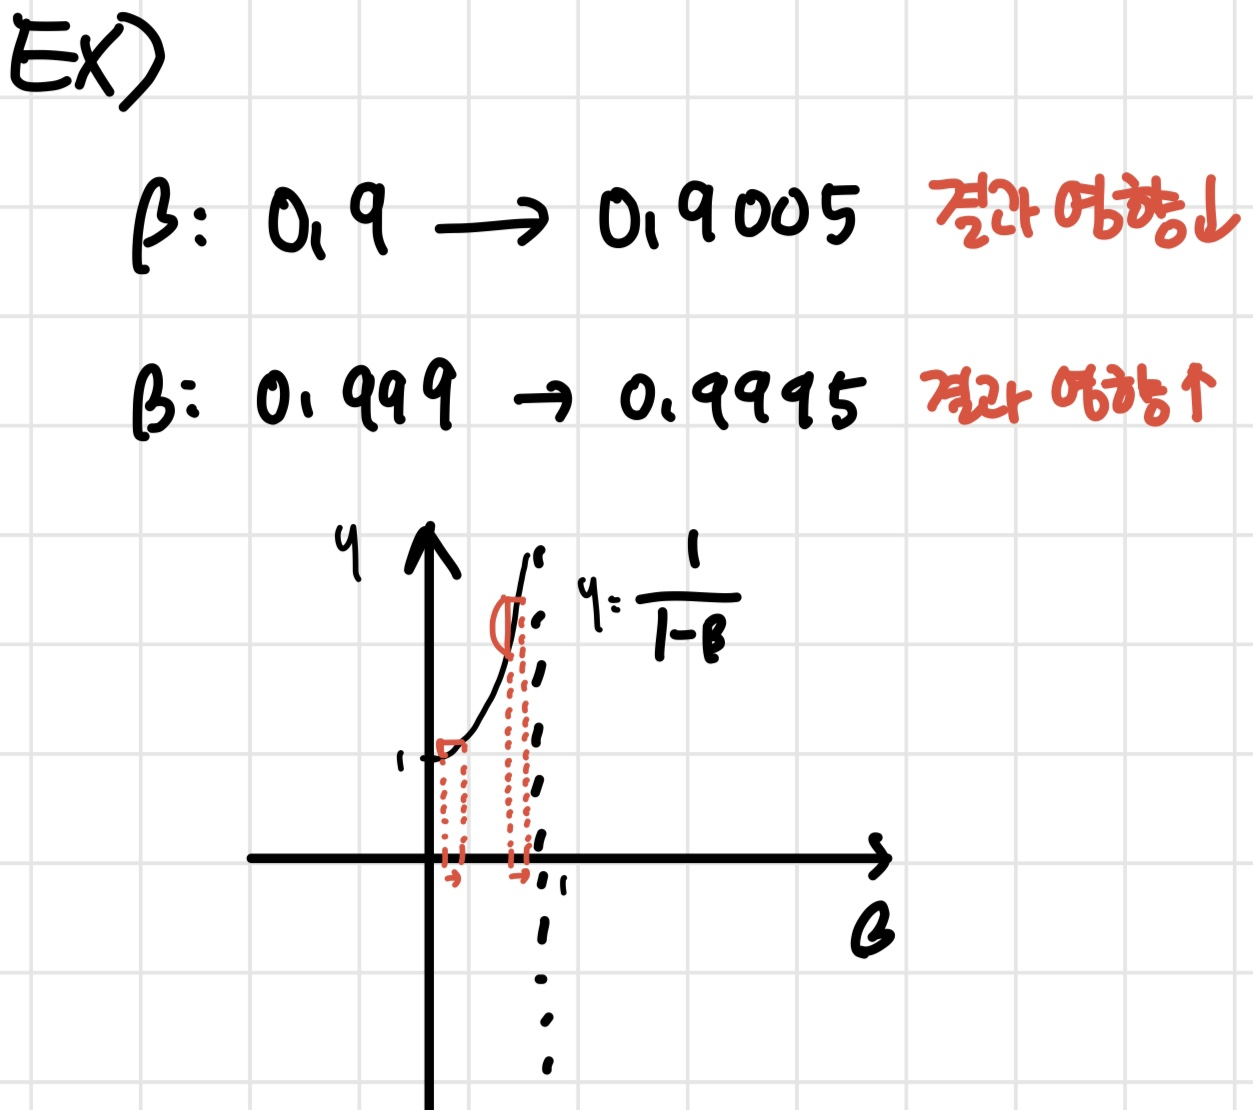 EX)
β: 0.9 → 0.9005 결과 영향↓
β: 0.999 → 0.9995 결과 영향↑
y
y = 1/(1-β)
1
1
β